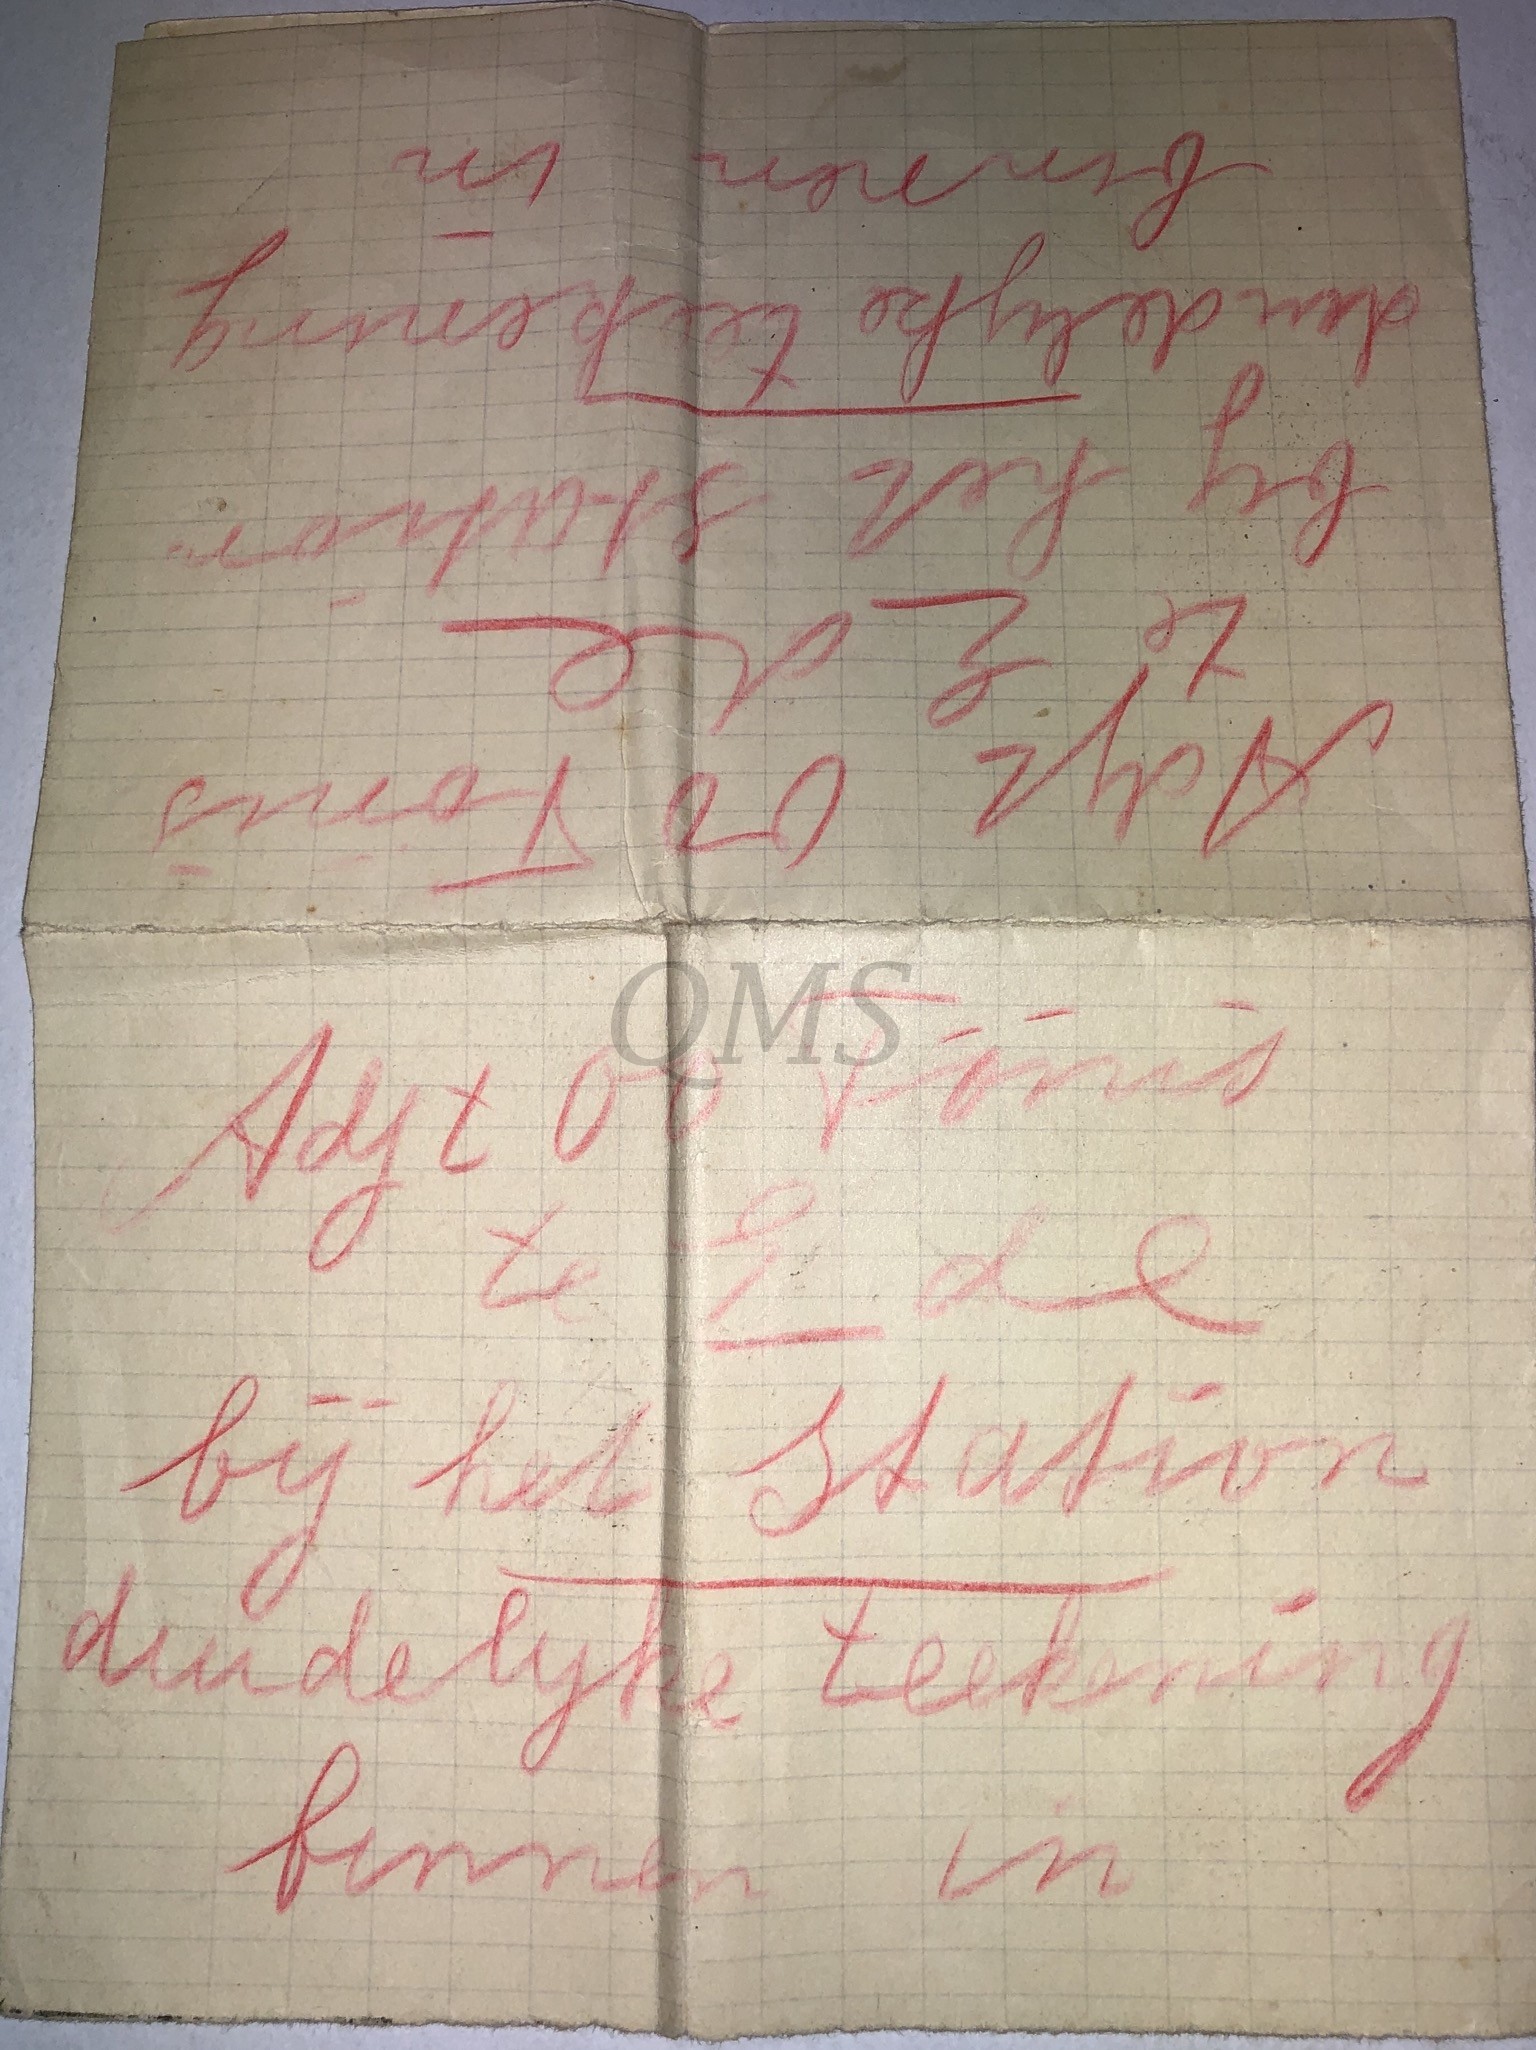 Adjt OO Tönis
te Ede
bij het station
duidelyke teekening
binnen in
QMS
Adjt OO Tönis
te Ede
by het station
duidelyke teekening
binnen in